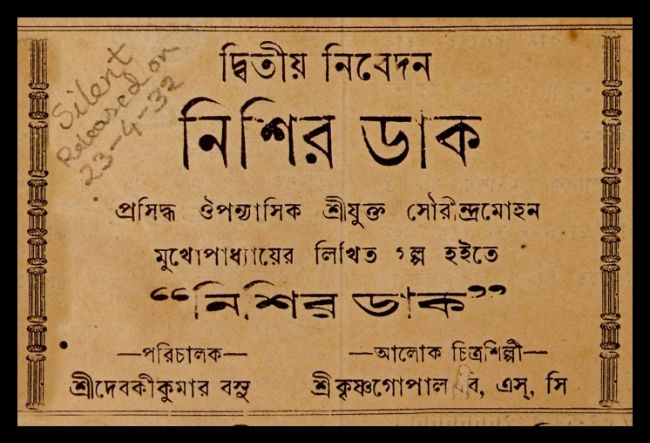 Silent
Released on
23-4-32
দ্বিতীয় নিবেদন
নিশির ডাক
প্রসিদ্ধ ঔপন্যাসিক শ্রীযুক্ত সৌরীন্দ্রমোহন
মুখোপাধ্যায়ের লিখিত গল্প হইতে
“নিশির ডাক”
—পরিচালক—
শ্রীদেবকীকুমার বসু
—আলোক চিত্রশিল্পী—
শ্রীকৃষ্ণগোপাল বি, এস্, সি